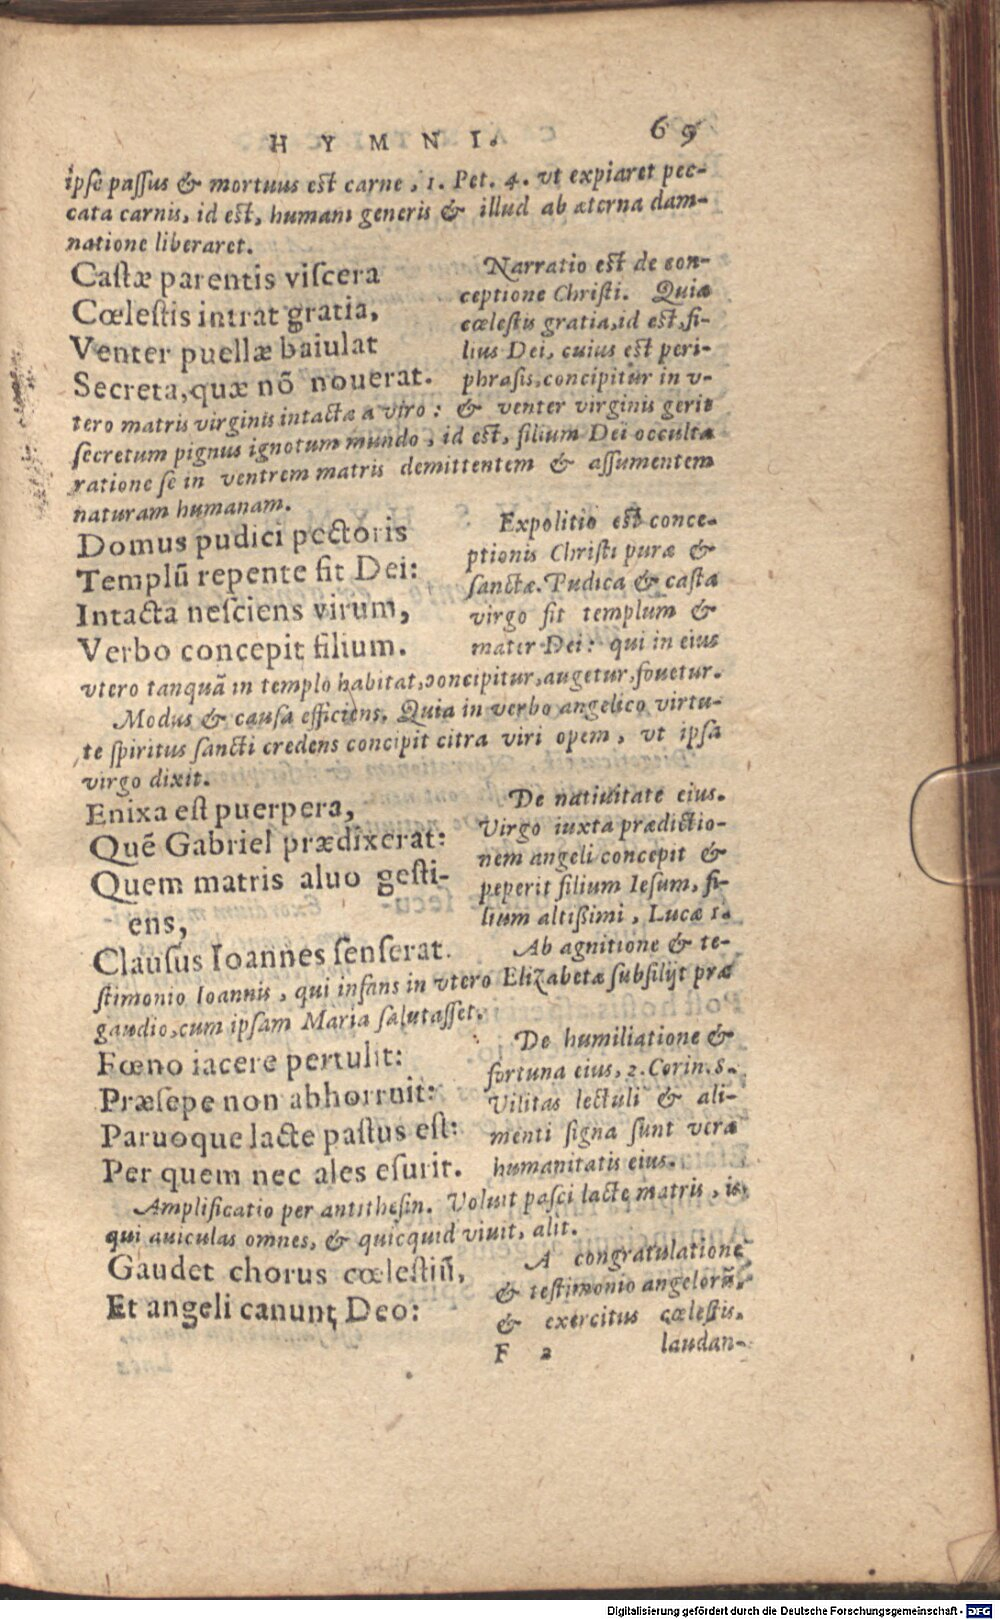 HYMNI. 69
ipse passus & mortuus est carne, 1. Pet. 4. vt expiaret pec-
cata carnis, id est, humani generis & illud ab æterna dam-
natione liberaret.
Castæ parentis viscera
Cœlestis intrat gratia,
Venter puellæ baiulat
Secreta, quæ nõ nouerat.
Narratio est de con-
ceptione Christi. Quia
cœlestis gratia, id est, fi-
lius Dei, cuius est peri-
phrasis, concipitur in v-
tero matris virginis intactæ a viro: & venter virginis gerit
secretum pignus ignotum mundo, id est, filium Dei occulta
ratione se in ventrem matris demittentem & assumentem
naturam humanam.
Domus pudici pectoris
Templũ repente fit Dei:
Intacta nesciens virum,
Verbo concepit filium.
Expolitio est conce-
ptionis Christi puræ &
sanctæ. Pudica & casta
virgo fit templum &
mater Dei: qui in eius
vtero tanquã in templo habitat, concipitur, augetur, fouetur.
Modus & causa efficiens. Quia in verbo angelico virtu-
te spiritus sancti credens concipit citra viri opem, vt ipsa
virgo dixit.
Enixa est puerpera,
Quẽ Gabriel prædixerat:
Quem matris aluo gesti-
ens,
Clausus Ioannes senserat.
De natiuitate eius.
Virgo iuxta prædictio-
nem angeli concepit &
peperit filium Iesum, fi-
lium altißimi, Lucæ 1.
Ab agnitione & te-
stimonio Ioannis, qui infans in vtero Elizabetæ subsilijt præ
gaudio, cum ipsam Maria salutasset.
Fœno iacere pertulit:
Præsepe non abhorruit:
Paruoque lacte pastus est:
Per quem nec ales esurit.
De humiliatione &
fortuna eius, 2. Corin. 8.
Vilitas lectuli & ali-
menti signa sunt veræ
humanitatis eius.
Amplificatio per antithesin. Voluit pasci lacte matris, is
qui auiculas omnes, & quicquid viuit, alit.
Gaudet chorus cœlestiũ,
Et angeli canunt Deo:
A congratulatione
& testimonio angelorũ,
& exercitus cœlestis.
F 2 laudan-
Digitalisierung gefördert durch die Deutsche Forschungsgemeinschaft - DFG